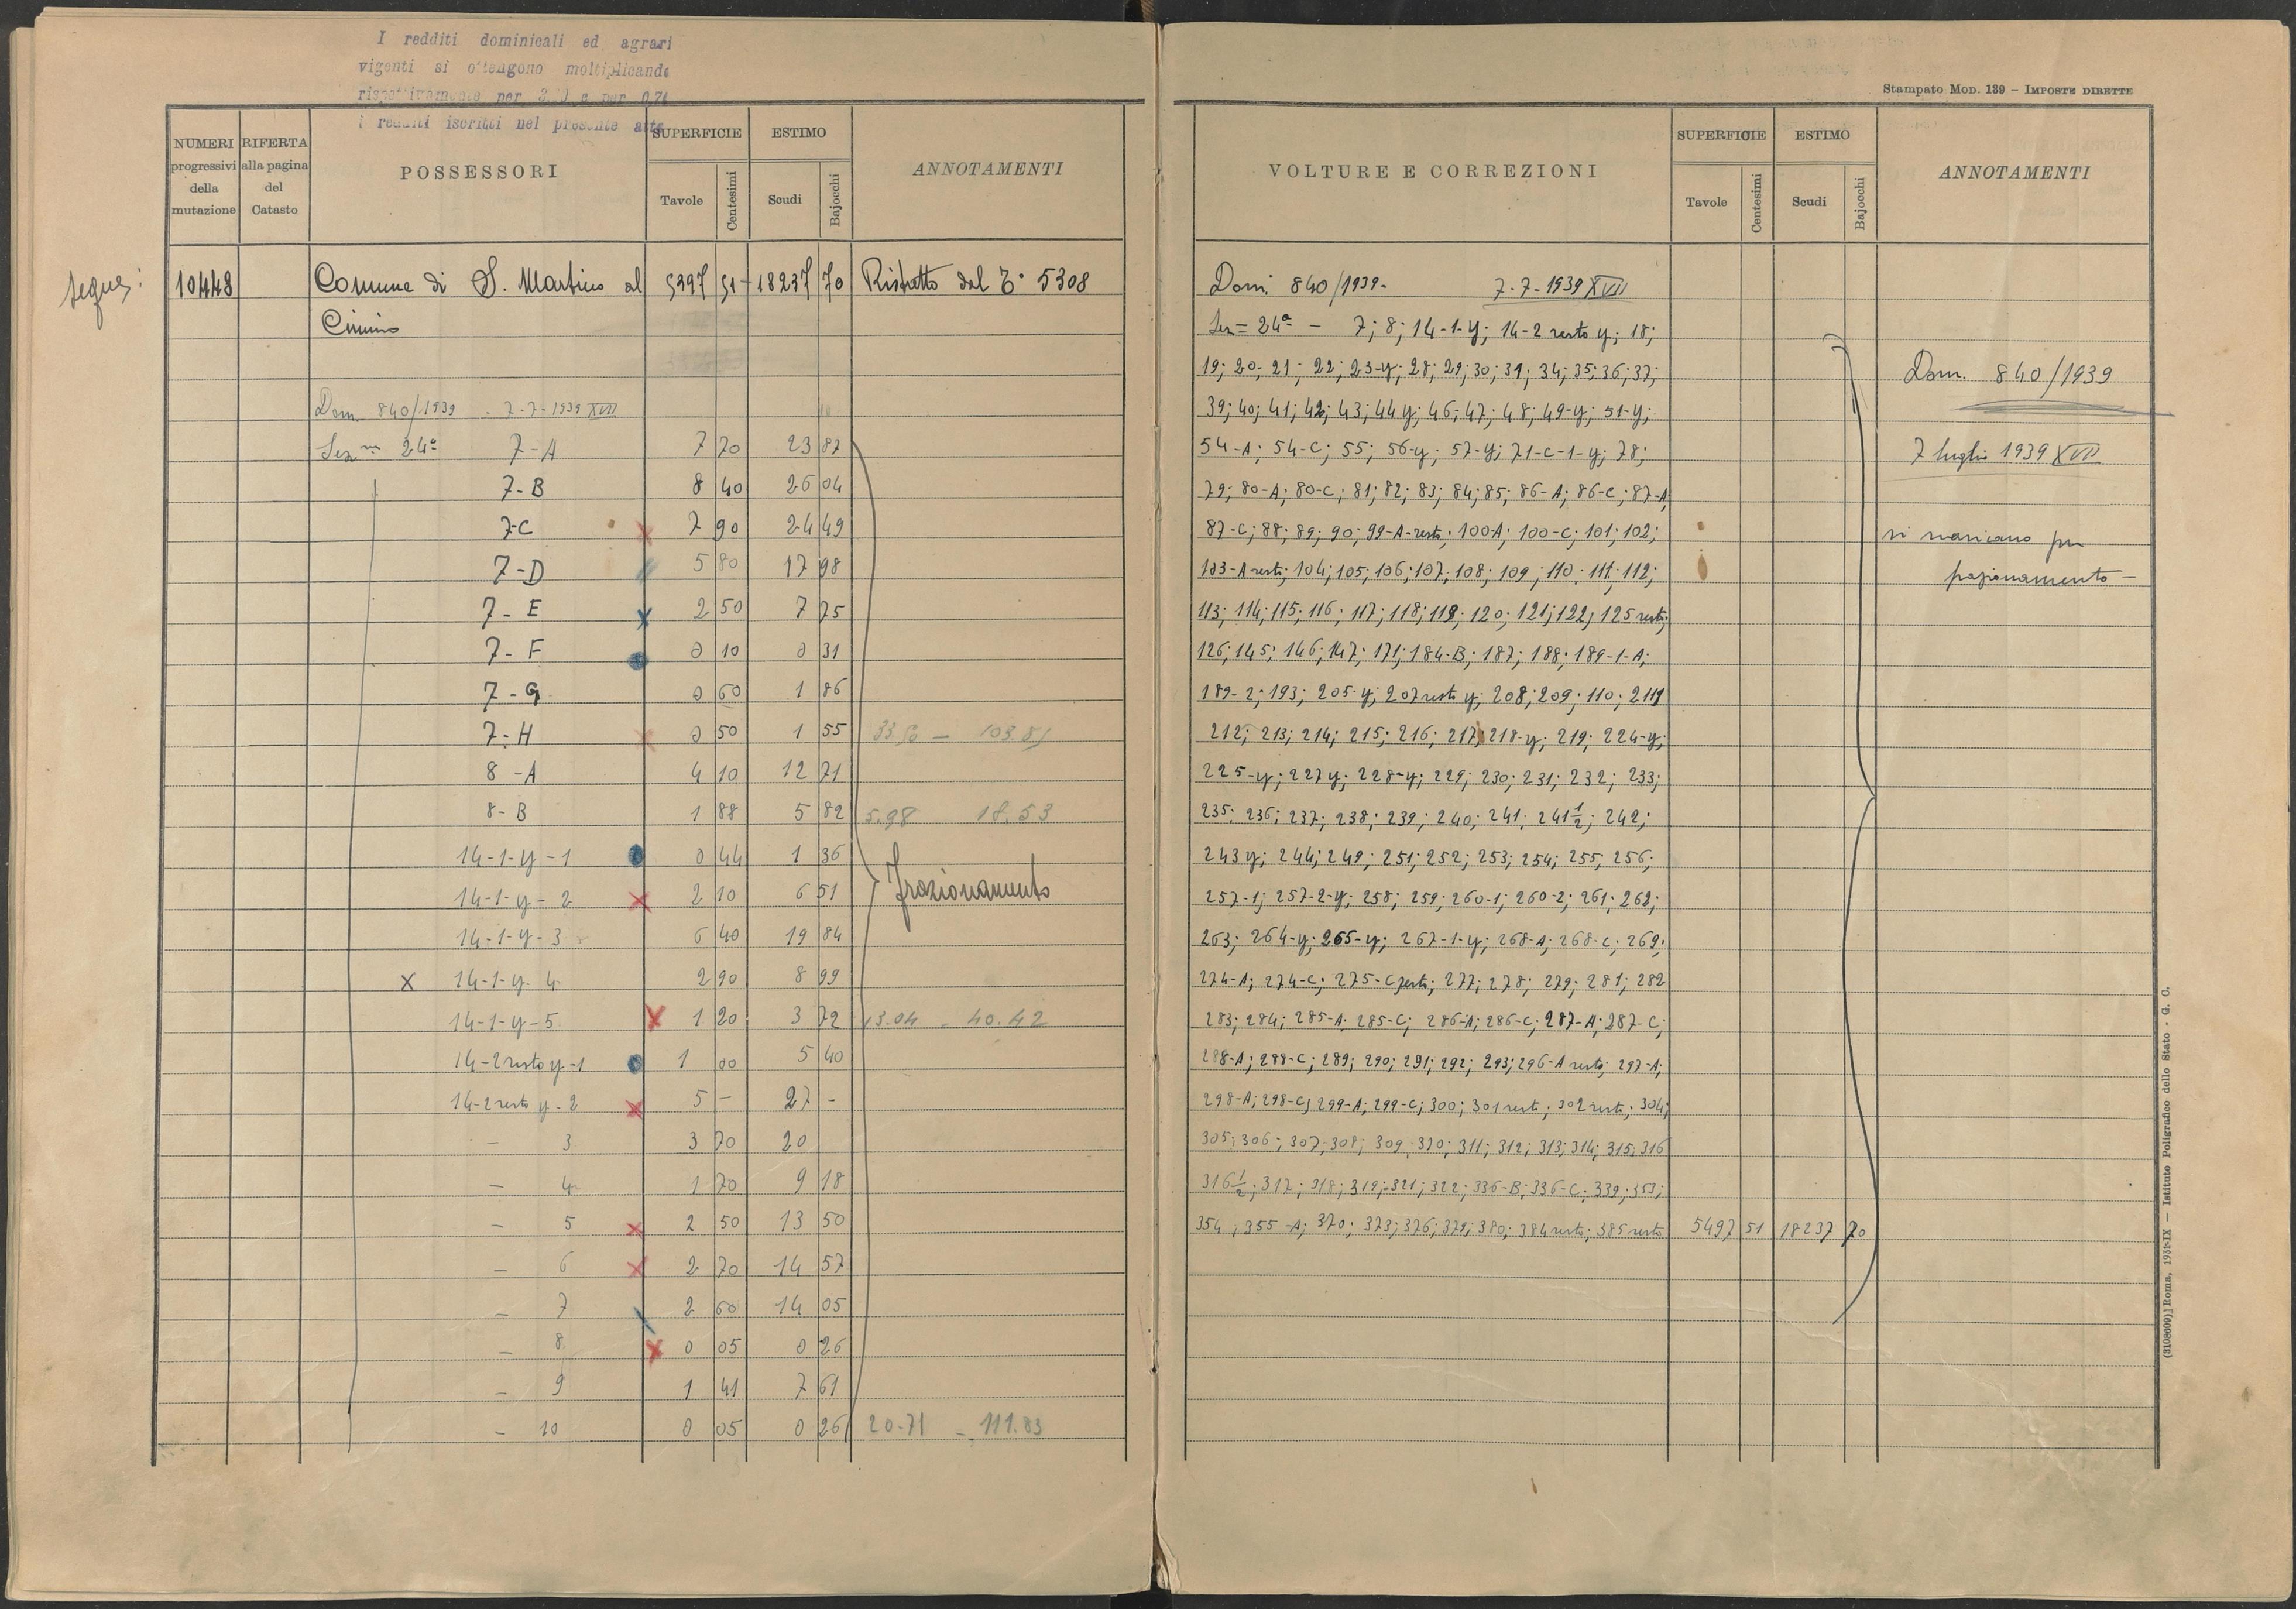 I redditi dominicali ed agrari
vigenti si ottengono moltiplicando
rispettivamente per 3.50 e per 0.74
i redditi iscritti nel presente atto
NUMERI progressivi della mutazione
RIFERTA alla pagina del Catasto
POSSESSORI
SUPERFICIE Tavole Centesimi
ESTIMO Scudi Bajocchi
ANNOTAMENTI
segue:
10448 Comune di S. Martino al 5397 51 18237 70 Ristretto dal 5308
Cimino
Dom. 840/1939 - 7-7-1939 XVII
Sezne 24a 7-A 7 70 23 87
7-B 8 40 26 04
7-C 7 90 24 49
7-D 5 80 17 98
7-E 2 50 7 75
7-F 0 10 0 31
7-G 0 60 1 86
7-H 0 50 1 55 33.50 - 103.85
8-A 4 10 12 71
8-B 1 88 5 82 5.98 18.53
14-1-y-1 0 44 1 36
14-1-y-2 2 10 6 51 Frazionamento
14-1-y-3 6 40 19 84
x 14-1-y-4 2 90 8 99
14-1-y-5 1 20 3 72 13.04 - 40.42
14-2 resto y-1 1 00 5 40
14-2 resto y-2 5 - 27 -
- 3 3 70 20
- 4 1 70 9 18
- 5 2 50 13 50
- 6 2 70 14 57
- 7 2 60 14 05
- 8 0 05 0 26
- 9 1 41 7 61
- 10 0 05 0 26 20.71 - 111.83
Stampato Mod. 139 – IMPOSTE DIRETTE
VOLTURE E CORREZIONI
SUPERFICIE Tavole Centesimi
ESTIMO Scudi Bajocchi
ANNOTAMENTI
Dom. 840/1939- 7-7-1939 XVII
Sez= 24a - 7; 8; 14-1-y; 14-2 resto y; 18;
19; 20; 21; 22; 23-y; 28; 29; 30; 31; 34; 35; 36; 37;
39; 40; 41; 42; 43; 44y; 46; 47; 48; 49-y; 51-y;
54-A; 54-C; 55; 56-y; 57-y; 71-C-1-y; 78;
79; 80-A; 80-C; 81; 82; 83; 84; 85; 86-A; 86-C; 87-A
87-C; 88; 89; 90; 99-A-resto; 100A; 100-C; 101; 102;
103-A resto; 104; 105; 106; 107; 108; 109; 110; 111; 112;
113; 114; 115; 116; 117; 118; 119; 120; 121; 122; 125 resto;
126; 145; 146; 147; 171; 184-B; 187; 188; 189-1-A;
189-2; 193; 205-y; 207 resto y; 208; 209; 110; 211
212; 213; 214; 215; 216; 217; 218-y; 219; 224-y;
225-y; 227y; 228-y; 229; 230; 231; 232; 233;
235; 236; 237; 238; 239; 240; 241; 241½; 242;
243y; 244; 249; 251; 252; 253; 254; 255; 256;
257-1; 257-2-y; 258; 259; 260-1; 260-2; 261; 262;
263; 264-y; 265-y; 267-1-y; 268-A; 268-C; 269;
274-A; 274-C; 275-C resto; 277; 278; 279; 281; 282
283; 284; 285-A; 285-C; 286-A; 286-C; 287-A; 287-C;
288-A; 288-C; 289; 290; 291; 292; 293; 296-A resto; 297-A;
298-A; 298-C; 299-A; 299-C; 300; 301 resto; 302 resto; 304;
305; 306; 307; 308; 309; 310; 311; 312; 313; 314; 315; 316
316½; 317; 318; 319; 321; 322; 336-B; 336-C; 339; 353;
354; 355-A; 370; 373; 376; 379; 380; 384 resto; 385 resto 5497 51 18237 70
Dom. 840/1939
7 luglio 1939 XVII
si scaricano per
frazionamento -
(3108609) Roma, 1931-IX — Istituto Poligrafico dello Stato - G. C.